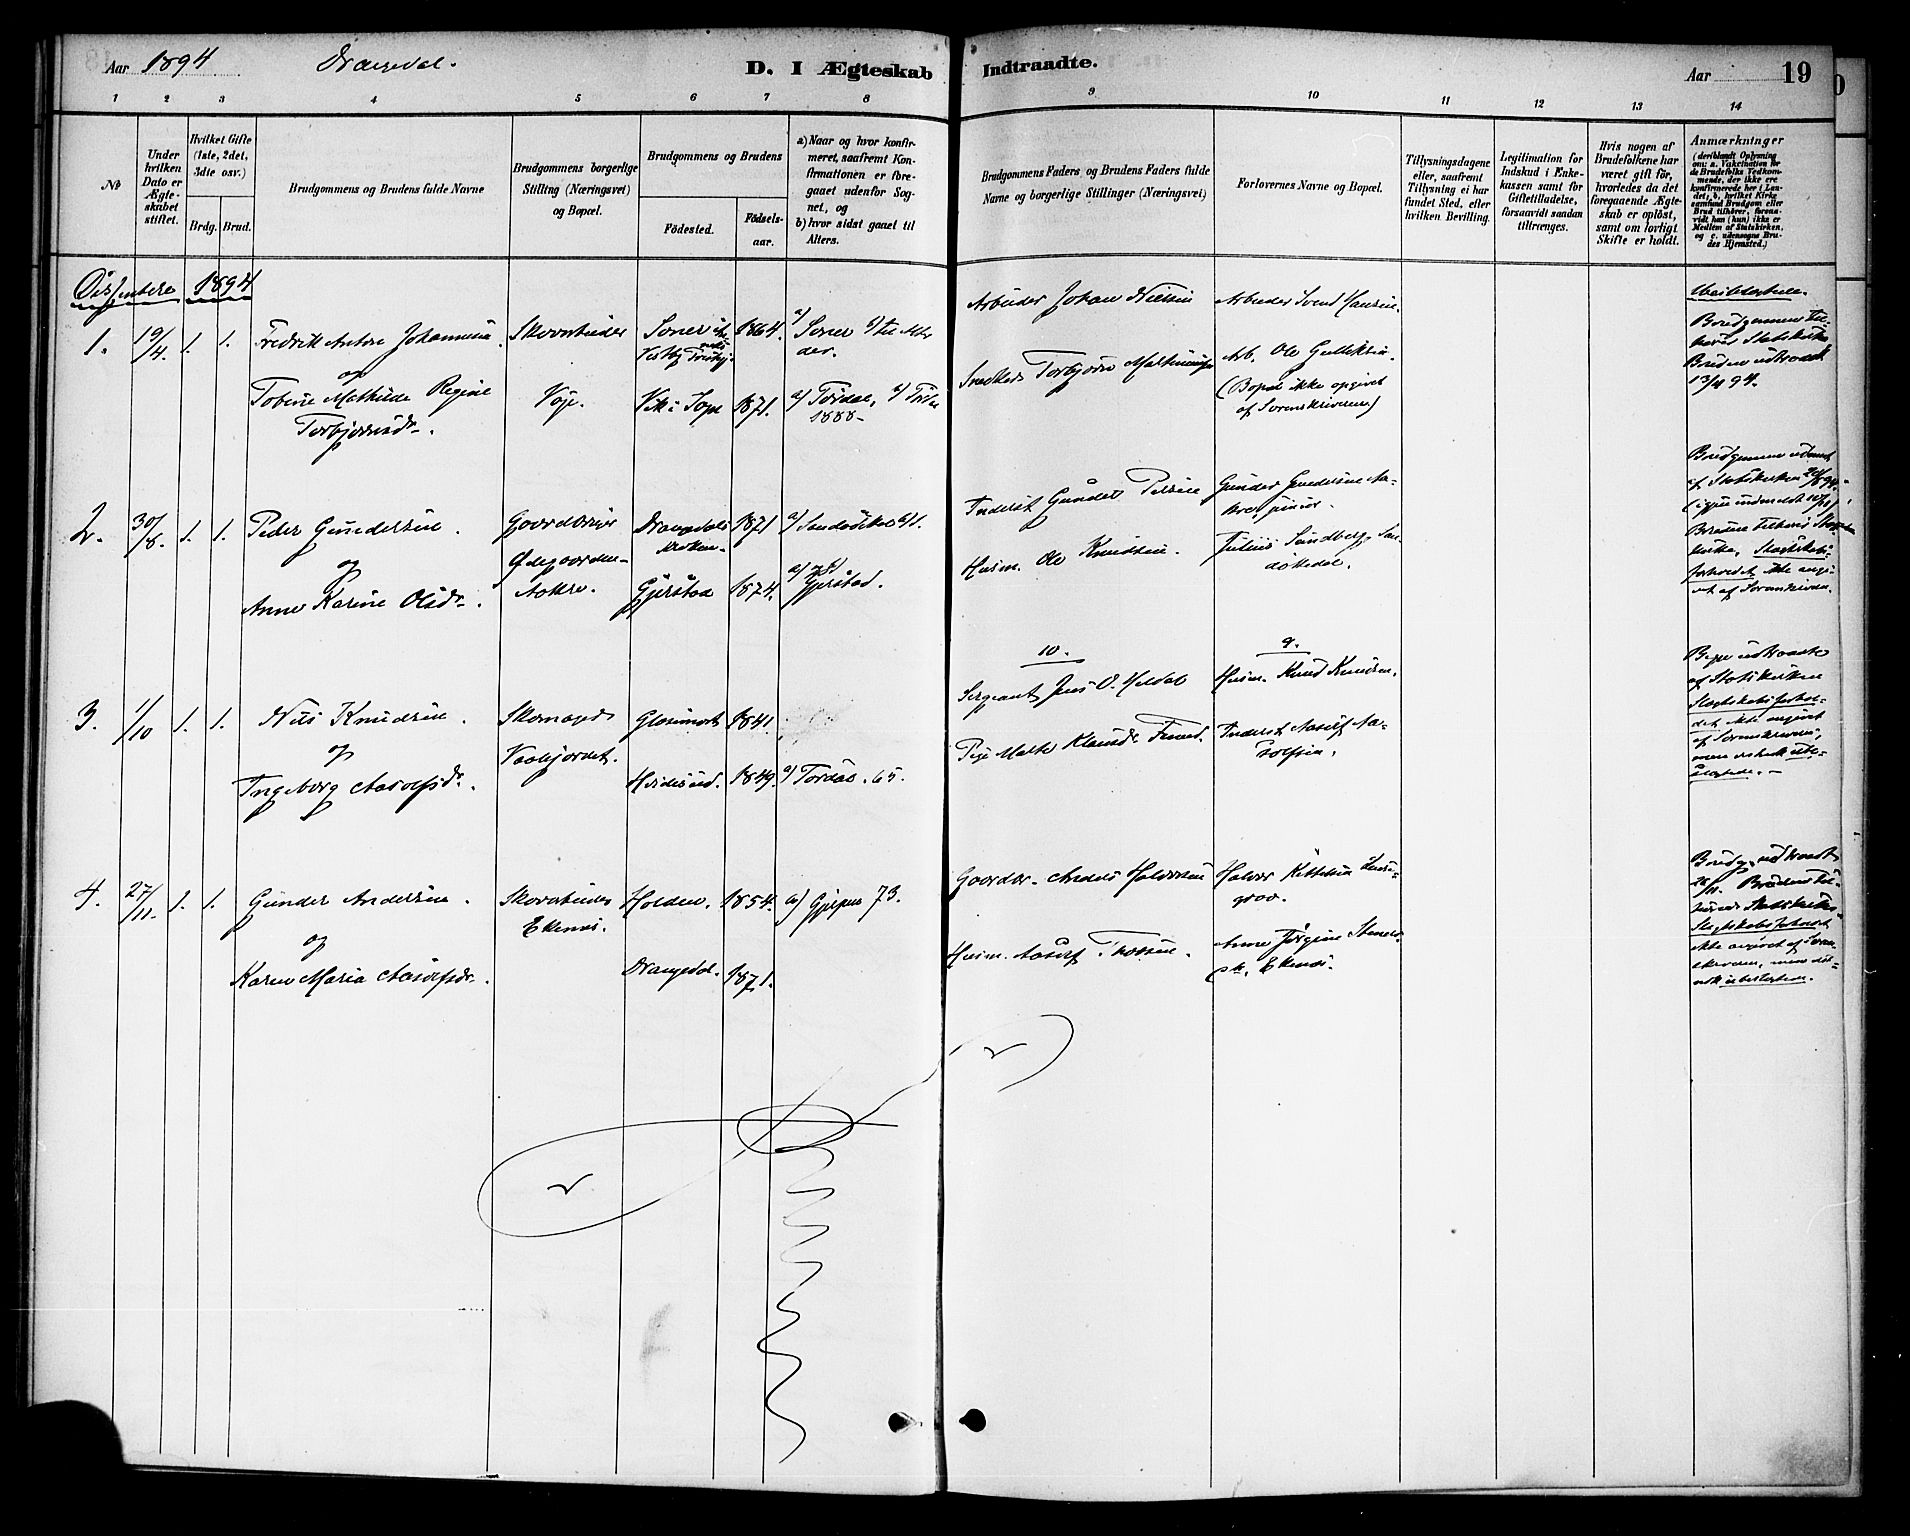 Aar 1894 Drangedal. D. I Ægteskab Indtraadte. Aar 19
1 2 3 4 5 6 7 8 9 10 11 12 13 14
№
Under hvilken Dato er Ægteskabet stiftet.
Hvilket Gifte (1ste, 2det, 3dte osv.)
Brdg. Brud.
Brudgommens og Brudens fulde Navne
Brudgommens borgerlige Stilling (Næringsvei) og Bopæl.
Brudgommens og Brudens
Födested. Födsels-aar.
a) Naar og hvor konfirmeret, saafremt Konfirmationen er foregaaet udenfor Sognet, og
b) hvor sidst gaaet til Alters.
Brudgommens Faders og Brudens Faders fulde Navne og borgerlige Stillinger (Næringsvei)
Forlovernes Navne og Bopæl.
Tillysningsdagene eller, saafremt Tillysning ei har fundet Sted, efter hvilken Bevilling.
Legitimation for Indskud i Enkekassen samt for Giftetilladelse, forsaavidt saadan tiltrænges.
Hvis nogen af Brudefolkene har været gift för, hvorledes da det foregaaende Ægteskab er oplöst, samt om lovligt Skifte er holdt.
Anmærkninger
(deriblandt Oplysning om: a. Vaksination for de Brudefolks Vedkommende, der ikke ere konfirmerede her i Landet, b. hvilket Kirkesamfund Brudgom eller Brud tilhörer, forsaavidt han (hun) ikke er Medlem af Statskirken, og c. udensogns Brudes Hjemsted.)
Dissentere 1894
1. 19/4. 1. 1. Fredrik Anton Johannesen
og
Tobine Mathilde Regine
Torbjörnsdr.
Skovarbeider
Voje.
Soner
1864. a) Soner
Vik i 1871. a) Tördal,
1888
Arbeider Johan Nielsen
Snedker Torbjörn
Arbeider Svend Hansen.
Arb. Ole Gulliksen
(Bopæl ikke opgivet
af Sorenskriveren)
Ubeslægtede.
Brudgommen til-
hører Statskirke
Bruden udtraadt
13/4 94.
2. 30/8. 1. 1. Peder Gundersen.
og
Anne Karine Olsdr.
Gaardbruger
Ødegaarden
Drangedal
1871
Gjerstad 1874. Gjerstad.
Inderst Gunder Persen
Husm. Ole Knudsen.
Gunder Gundersen
junior.
Julius Sundberg, San-
dökedal.
Brudgommen udmeldt
af Statskirken
Bruden tilhører Stats-
kirke, Slægtskabs-
forholdet ikke angi-
vet af Sorenskriveren.
3. 1/10 1. 1. Nils Knudsen.
og
Ingeborg Aasolfsdr.
1841.
1849. a) Tördal. 65.
10. 9.
Sergeant Jens O. Heldal
Pige Marte
Husm. Knud Knudsen.
Inderst Aasolf Aa-
solfsen.
Begge udtraadte
af Statskirken
Slægtskabsforhol-
det ikke angivet
af Sorenskriveren,
men vistnok ube-
slægtede.
4. 27/11. 1. 1. Gunder Andersen.
og
Karen Maria Aasolfsdr.
Skovarbeider
Ekenæs.
Holden. 1854. a) Gjerpen 73.
Drangedal. 1871.
Gaardbr. Anders Halvorsen
Husm. Aasolf
Halvor Kittelsen
Anne Jörgine
Ekenæs.
Brudg. udtraadt
Bruden til-
hører Statskirken
Slægtskabsforholdet
ikke angivet af Soren-
skriveren, men vist-
nok ubeslægtede.